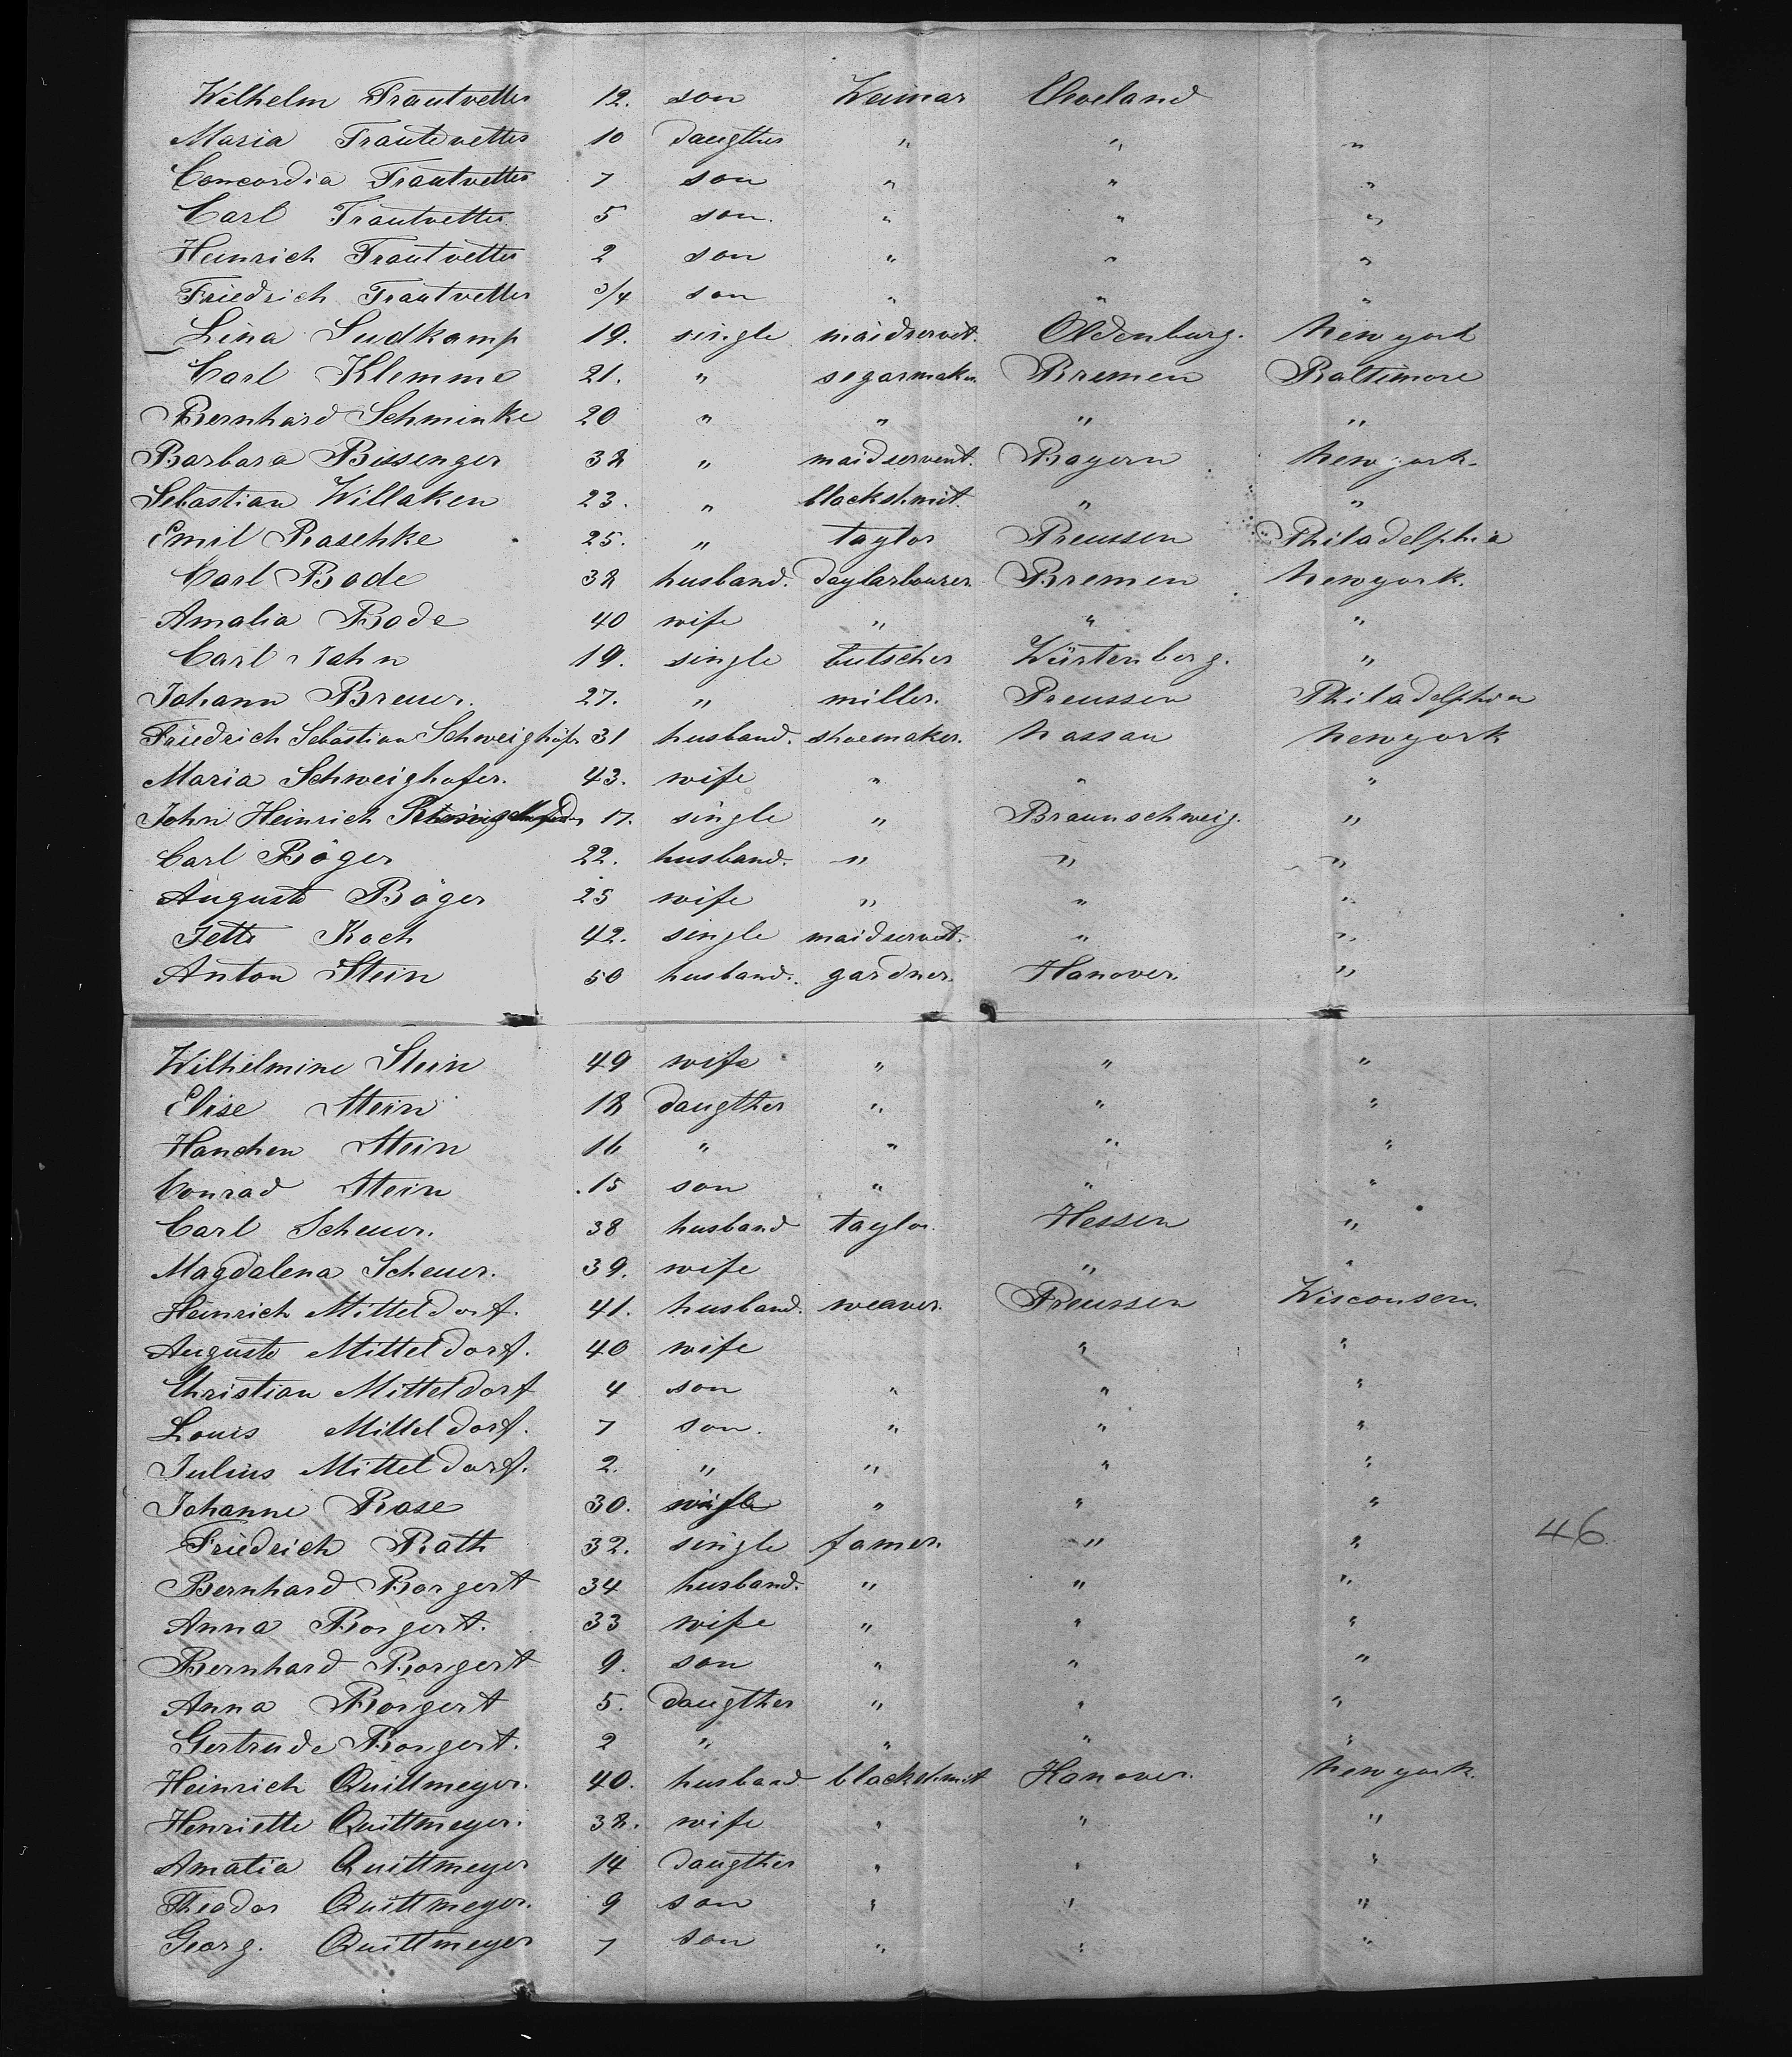 Wilhelm Trautvetter 12. son Weimar Cleveland
Maria Trautevetter 10 daugther " " "
Concordia Trautvetter 7 son " " "
Carl Trautvetter 5 son. " " "
Heinrich Trautvetter 2 son " " "
Friedrich Trautvetter 3/4 son " " "
Lina Sudkamp 19. single maidservet. Oldenburg. Newyork
Carl Klemme 21. " segarmaker. Bremen Baltimore
Bernhard Schminke 20 " " " "
Barbara Bissenger 38 " maidservent. Bayern Newyork.
Sebastian Willaken 23. " blackshmit. " "
Emil Raschke 25. " taylor Preussen Philadelphia
Carl Bode 38 husband. daylarbourer. Bremen Newyork.
Amalia Bode 40 wife " " "
Carl Jahn 19. single butscher Würtenberg. "
Johann Breuer. 27. " miller. Preussen Philadelphia
Friedrich Sebastian Schweighöfer 31 husband. shoemaker. Nassau Newyork
Maria Schweighofer. 43. wife " " "
John Heinrich 17. single " Braunschweig. "
Carl Böger 22. husband. " " "
Auguste Böger 25 wife " " "
Jette Koch 42. single maidservet. " "
Anton Stein 50 husband. gardner. Hanover. "
Wilhelmine Stein 49 wife " " "
Elise Stein 18 daugther " " "
Hanchen Stein 16 " " " "
Conrad Stein .15 son " " "
Carl Scheuer. 38 husband taylor. Hessen "
Magdalena Scheuer. 39. wife " "
Heinrich Mitteldorf. 41. husband. weaver. Preussen Wisconsen.
Auguste Mitteldorf. 40 wife " "
Christian Mitteldorf 4 son " " "
Louis Mitteldorf. 7 son. " " "
Julius Mitteldorf. 2. " " " "
Johanne Rose 30. " " "
Friedrich Rath 32. single famer. " " 46
Bernhard Borgert 34 husband. " " "
Anna Borgert. 33 wife " " "
Bernhard Borgert 9. son " " "
Anna Borgert 5. daugther " " "
Gertrude Borgert. 2 " " " "
Heinrich Quittmeyer. 40. husband blackshmit Hanover. Newyork.
Henriette Quittmeyer. 38. wife " " "
Amalia Quittmeyer 14 daugther " " "
Theodor Quittmeyer. 9 son " " "
Georg. Quittmeyer 7 son " " "